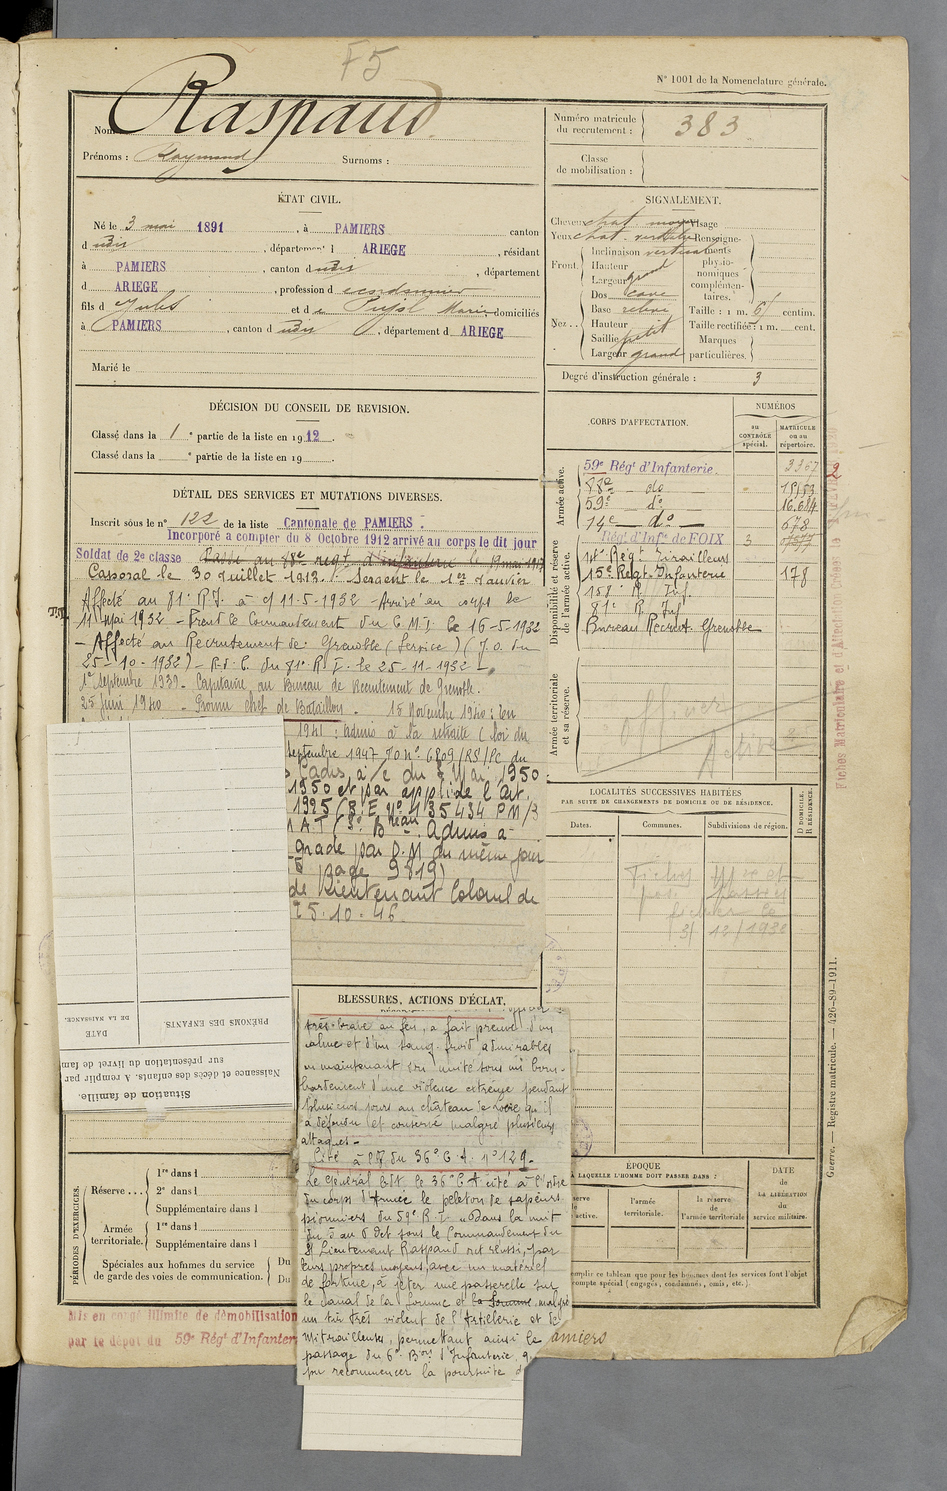 F5
N° 1001 de la Nomenclature générale.
Nom : Raspaud
Prénoms : Raymond Surnoms :
Numéro matricule du recrutement : 383
Classe de mobilisation :
ÉTAT CIVIL.
Né le 3 mai 1891, à PAMIERS canton
d udis, département d ARIEGE, résidant
à PAMIERS, canton d udis, département
d ARIEGE, profession d cordonnier
fils d Jules et de Pujol Marie, domiciliés
à PAMIERS, canton d udis, département d ARIEGE
Marié le
SIGNALEMENT.
Cheveux chat. moyen Visage
Yeux chat. Renseigne-
Front. Inclinaison verticale ments
Hauteur physio-
Largeur grand nomiques
Nez.. Dos cave complémen-
taires.
Base relevé Taille : 1 m. 61 centim.
Hauteur Taille rectifiée : 1 m. cent.
Saillie petit Marques
Largeur grand particulières.
Degré d'instruction générale : 3
DÉCISION DU CONSEIL DE REVISION.
Classé dans la 1e partie de la liste en 1912.
Classé dans la e partie de la liste en 19
DÉTAIL DES SERVICES ET MUTATIONS DIVERSES.
Inscrit sous le n° 122 de la liste Cantonale de PAMIERS.
Incorporé a compter du 8 Octobre 1912 arrivé au corps le dit jour
Soldat de 2e classe Passé au 88e regt. d'infanterie le 19 mai 1913
Caporal le 30 Juillet 1913. Sergent le 1er Janvier
Affecté au 81e R.I. à c/ 11-5-1932 - Arrivé au corps le
11 mai 1932 - Prend le Commandement du C.M.I. le 16-5-1932
- Affecté au Recrutement de Grenoble (Service) (J.O. du
25-10-1932) - R.d.C. du 81e R.I. le 25-11-1932
1er Septembre 1939 - Capitaine au Bureau de Recrutement de Grenoble.
25 juin 1940 - Promu chef de Bataillon - 15 Novembre 1940 : En
1941 : admis à la retraite (loi du
septembre 1947 JO n° 6809/RS/PC du
Cadres, à/c du 3 Mai 1950
1950 et par applic. de l'Art.
1925 (B.E. n° 435 434 PM/3
M A.T (3e Bureau. Admis à
grade par D.M. du même jour
page 9819)
de Lieutenant Colonel de
25.10.46.
CORPS D'AFFECTATION.
NUMÉROS
au CONTRÔLE spécial.
MATRICULE ou au répertoire.
Armée active.
59e Régt d'Infanterie. 3367
88e - do
59e - do - 16.684
14e - do - 678
Disponibilité et réserve de l'armée active.
Régt d'Infie de FOIX 3
Régt Tirailleurs
15e Régt. Infanterie 178
158e R. Inf.
81e R. Inf
Bureau Recrut. Grenoble
Armée territoriale et sa réserve.
Officier
Active
Fiches Matriculaire et d'Affection Créées le
LOCALITÉS SUCCESSIVES HABITÉES
PAR SUITE DE CHANGEMENTS DE DOMICILE OU DE RÉSIDENCE.
Dates. Communes. Subdivisions de région. D DOMICILE. R RÉSIDENCE.
Fiches Mle et
passées
fichier le
31/12/1930
Situation de famille.
Naissance et décès des enfants. A remplir par
sur présentation du livret de fam
PRÉNOMS DES ENFANTS.
DATE DE LA NAISSANCE.
BLESSURES, ACTIONS D'ÉCLAT,
très brave au feu, a fait preuve d'un
calme et d'un sang-froid admirables
en maintenant son unité sous un bom-
bardement d'une violence extrême pendant
plusieurs jours au château de qu'il
a défendu et conservé malgré plusieurs
attaques -
Cité à l'O. du 36e C.A. n° 129.
Le Général Cdt. le 36e C.A. cite à l'ordre
du corps d'Armée le peloton de sapeurs
pionniers du 59e R.I. "Dans la nuit
du 5 au 6 Oct sous le Commandement du
St Lieutenant Raspaud ont réussi, par
leurs propres moyens, avec un matériel
de fortune, à jeter une passerelle sur
le Canal de la Somme et la Somme, malgré
un tir très violent de l'Artillerie et de
Mitrailleuses, permettant ainsi le
passage du 6e Bon d'Infanterie, q
pu recommencer la poursuite d
PÉRIODES D'EXERCICES.
Réserve... 1re dans l
2e dans l
Supplémentaire dans l
Armée territoriale. 1re dans l
Supplémentaire dans l
Spéciales aux hommes du service de garde des voies de communication. Du
Du
ÉPOQUE
À LAQUELLE L'HOMME DOIT PASSER DANS :
DATE DE LA LIBÉRATION du service militaire.
serve
active.
l'armée territoriale.
la réserve de l'armée territoriale
emplir ce tableau que pour les hommes dont les services font l'objet
compte spécial (engagés, condamnés, omis, etc.).
Mis en congé illimité de démobilisation
par le dépôt du 59e Régt d'Infanterie
amiers
Guerre. — Registre matricule. — 426-89-1911.